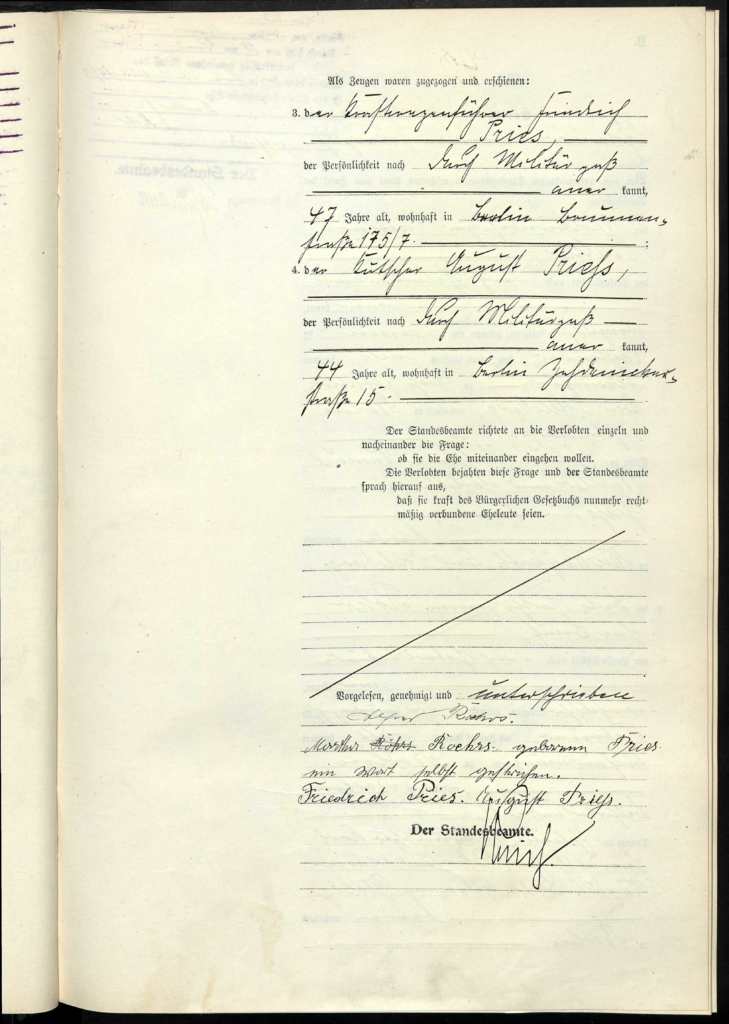 Als Zeugen waren zugezogen und erschienen:
3. der Kraftwagenführer Friedrich
Pries,
der Persönlichkeit nach durch Militärpaß
aner kannt,
47 Jahre alt, wohnhaft in Berlin Brunnen-
straße 175/7. ;
4. der Kutscher August Priehs,
der Persönlichkeit nach durch Militärpaß
aner kannt,
44 Jahre alt, wohnhaft in Berlin Zehdenicker-
straße 15.
Der Standesbeamte richtete an die Verlobten einzeln und
nacheinander die Frage:
ob sie die Ehe miteinander eingehen wollen.
Die Verlobten bejahten diese Frage und der Standesbeamte
sprach hierauf aus,
daß sie kraft des Bürgerlichen Gesetzbuchs nunmehr recht-
mäßig verbundene Eheleute seien.
Vorgelesen, genehmigt und unterschrieben
Röhrs.
Martha Röhrs Roehrs geborene Pries
ein Wort selbst gestrichen.
Friedrich Pries. August Priehs.
Der Standesbeamte.